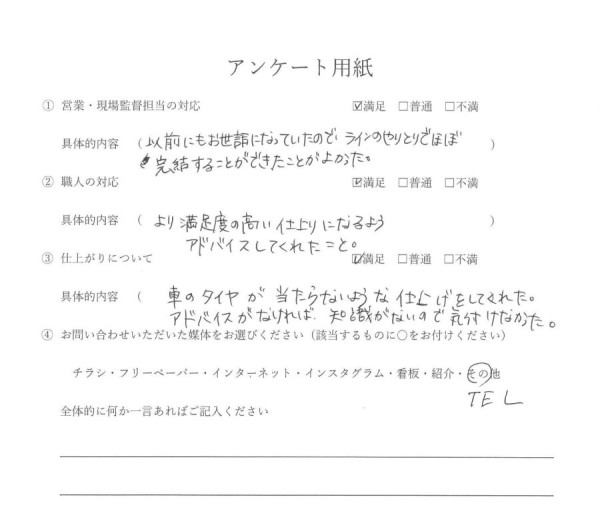 アンケート用紙
① 営業・現場監督担当の対応 ☑満足 □普通 □不満
具体的内容 (以前にもお世話になっていたので ラインのやりとりでほぼ )
完結することができたことがよかった。
② 職人の対応 ☑満足 □普通 □不満
具体的内容 ( より満足度の高い仕上りになるよう )
アドバイスしてくれたこと。
③ 仕上がりについて ☑満足 □普通 □不満
具体的内容 ( 車のタイヤが当たらないような仕上げをしてくれた。
アドバイスがなければ、知識がないので気付けなかった。
④ お問い合わせいただいた媒体をお選びください（該当するものに○をお付けください）
チラシ・フリーペーパー・インターネット・インスタグラム・看板・紹介・その他
TEL
全体的に何か一言あればご記入ください